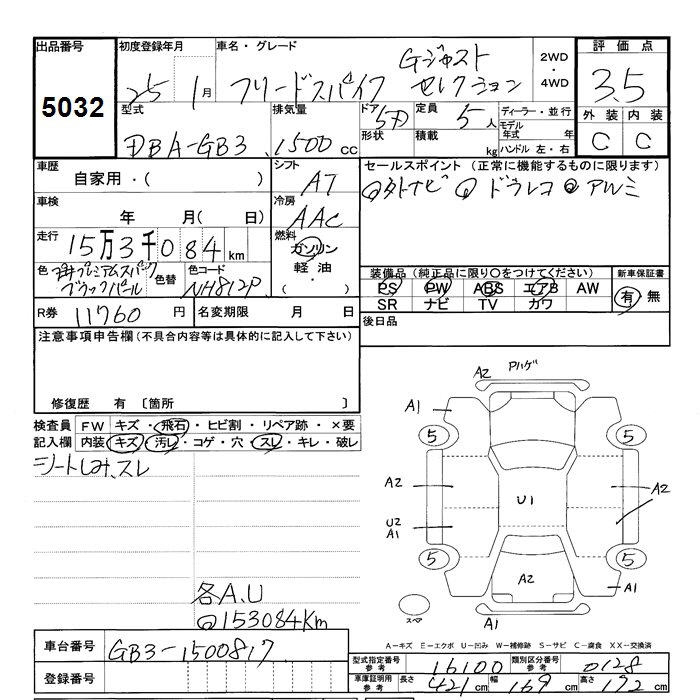 出品番号 初度登録年月 車名・グレード 2WD・4WD 評価点
5032 25 1月 フリードスパイク Gジャスト セレクション 3.5
型式 排気量 ドア 5D 定員 5人 ディーラー・並行 外装 内装
DBA-GB3 1500cc 形状 積載 kg モデル年式 年 ハンドル 左・右 C C
車歴 シフト セールスポイント (正常に機能するものに限ります)
自家用・( ) AT 外ナビ ドラレコ アルミ
車検 冷房
年 月( 日) AAC
走行 燃料
15万3千084km ガソリン
軽油・( )
色 プレミアムスパークブラックパール 色替 色コード NH812P
装備品(純正品に限り○をつけてください) 新車保証書
PS PW ABS エアB AW 有・無
SR ナビ TV カワ
R券 11760円 名変期限 月 日 後日品
注意事項申告欄(不具合内容等は具体的に記入して下さい)
修復歴 有 〔箇所 〕
検査員 FW キズ・飛石・ヒビ割・リペア跡・×要
記入欄 内装 キズ・汚レ・コゲ・穴・スレ・キレ・破レ
シートしみ、スレ
A2
A1
5 5
A2 U1 A2
U2
A1
5 5
A2 A1
スペア A1
各A.U
153084Km
A-キズ E-エクボ U-凹み W-補修跡 S-サビ C-腐食 XX-交換済
車台番号 GB3-1500817
型式指定番号 参考 16100 類別区分番号 参考 0128
登録番号
車庫証明用 参考 長さ 421cm 幅 169cm 高さ 172cm